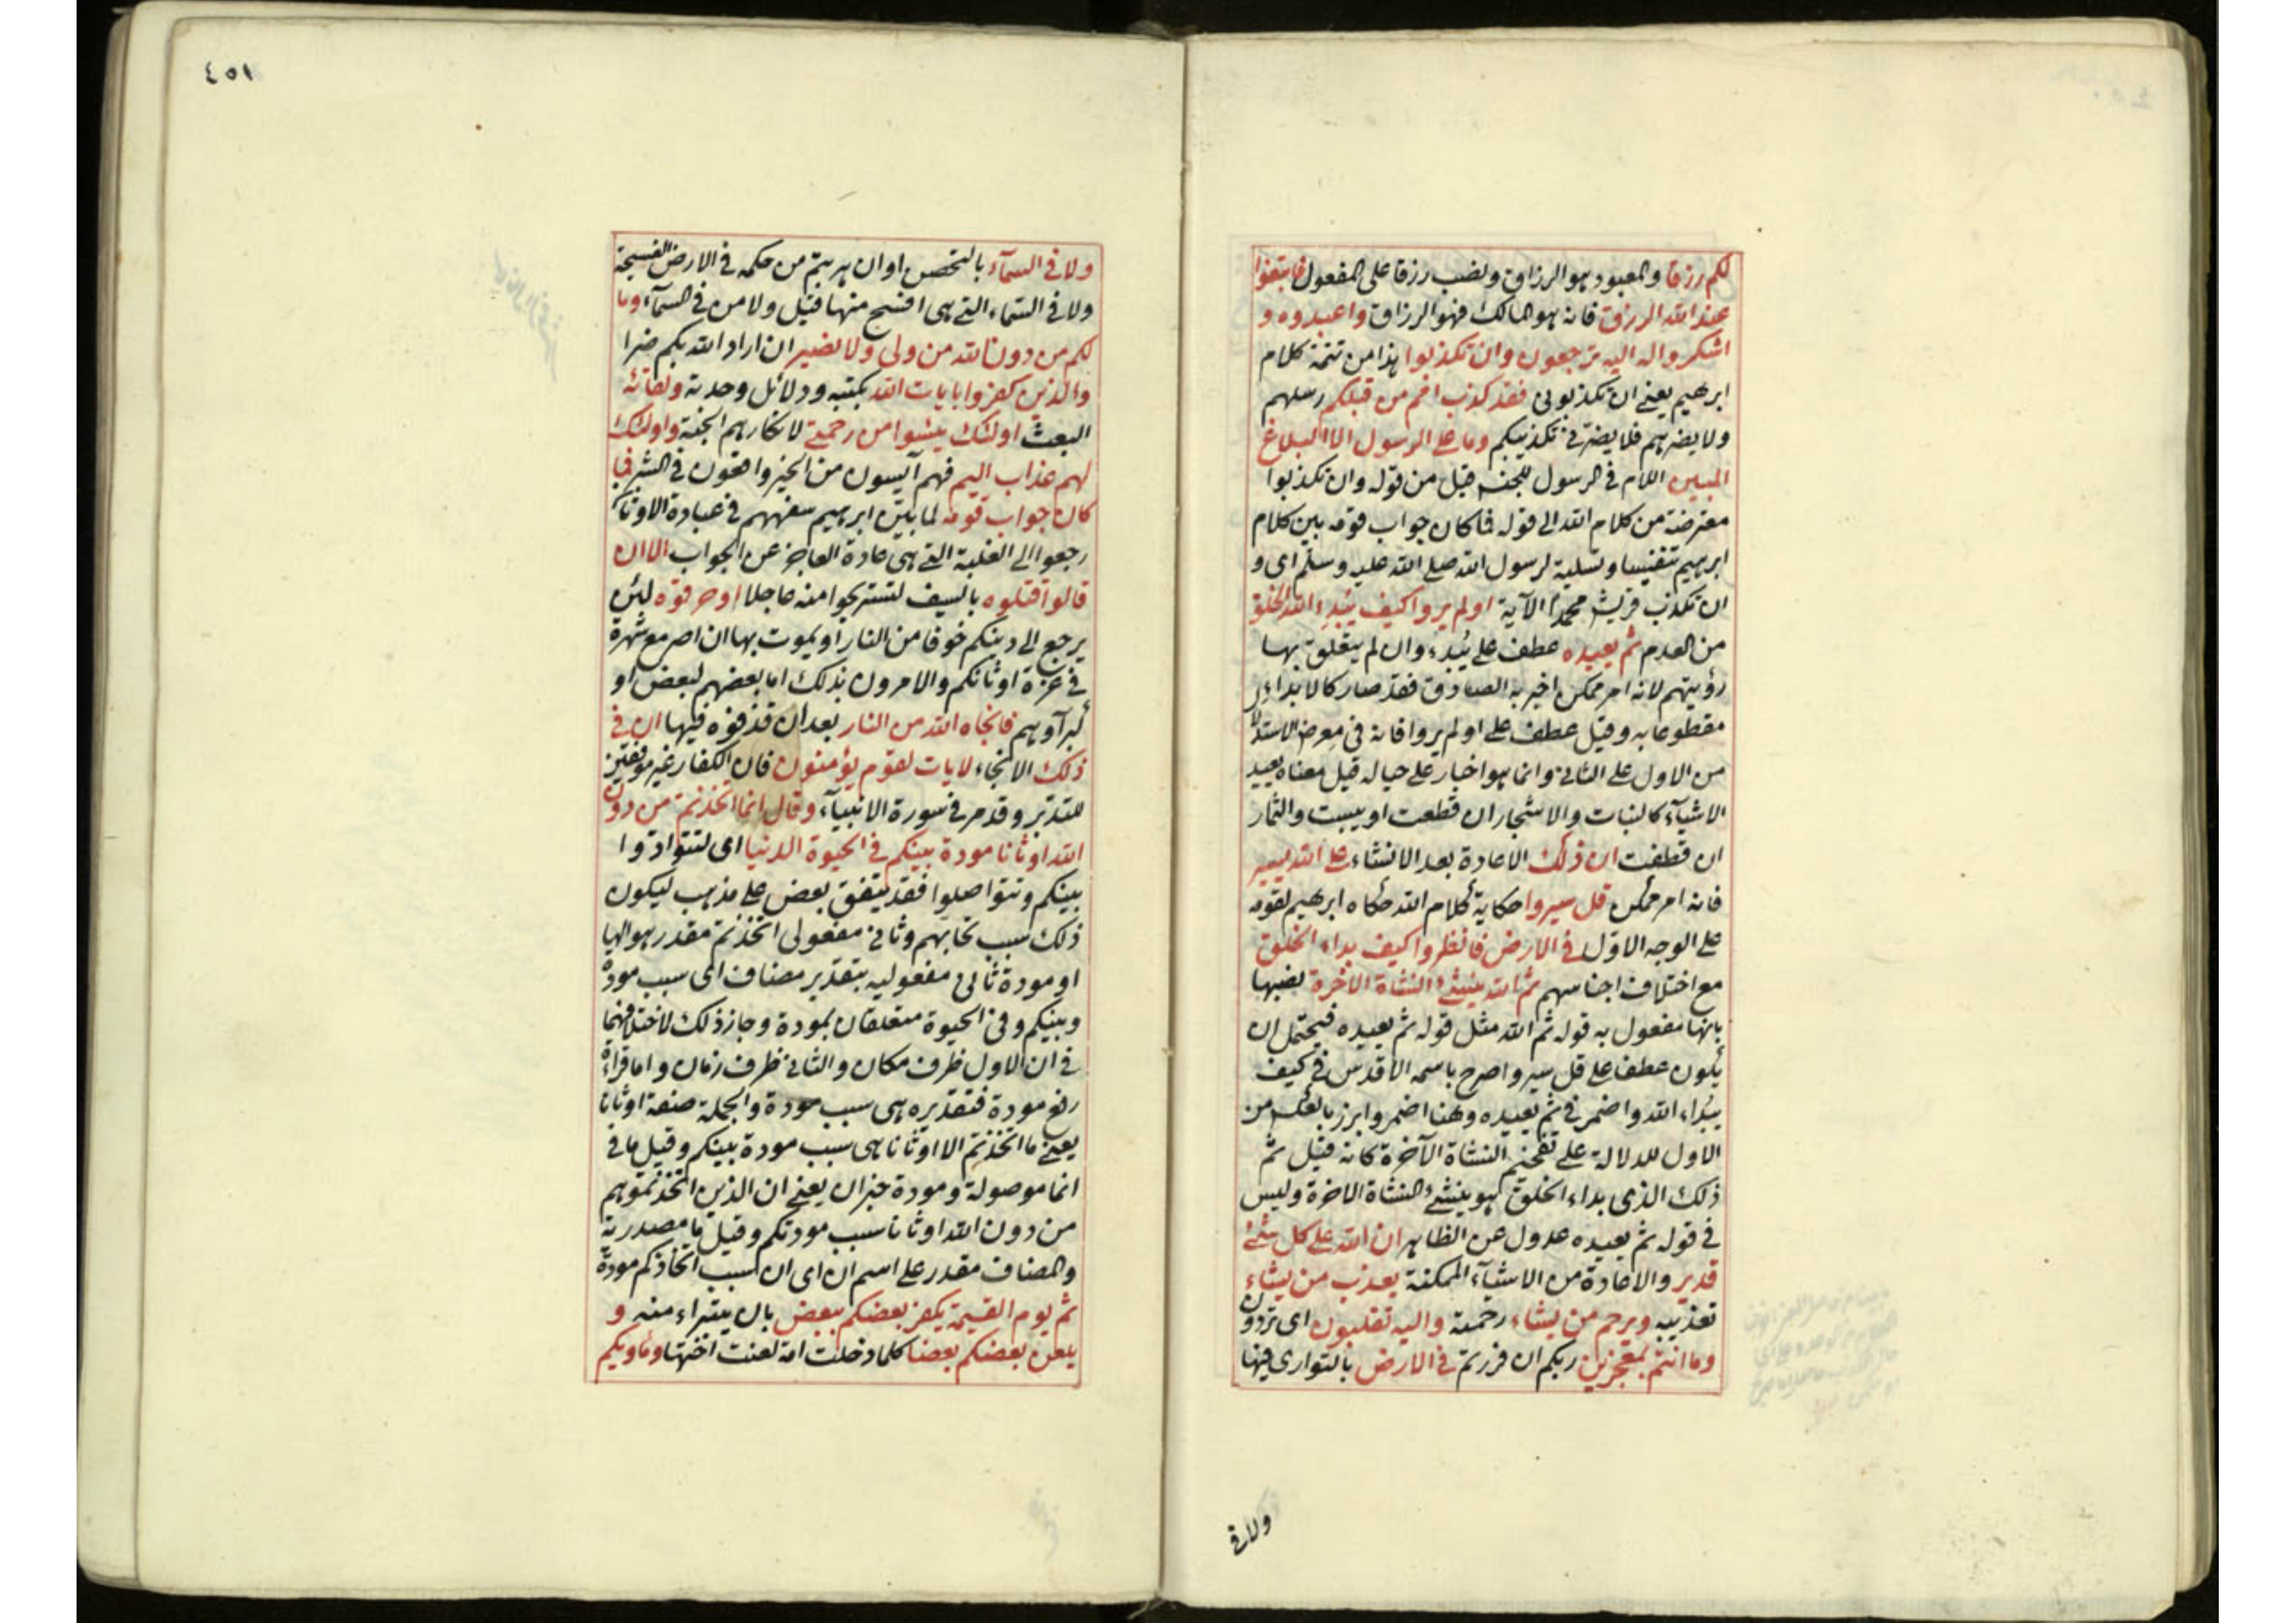 لكم رزقا والمعبود هو الرزاق ونصب رزقا على المفعول فابتغوا
عند الله الرزق فانه هو المالك فهو الرزاق واعبدوه و
اشكروا له اليه ترجعون وان تكذبوا هذا من تتمة كلام
ابرهيم يعني ان تكذبوني فقد كذب امم من قبلكم رسلهم
ولا يضرهم فلا يضرني تكذيبكم وما على الرسول الا البلاغ
المبين اللام في الرسول للجنس قيل من قوله وان تكذبوا
معترضة من كلام الله الى قوله فما كان جواب قومه بين كلام
ابرهيم تنفيسا وتسلية لرسول الله صلى الله عليه وسلم اى و
ان تكذب قريش محمدا الآية اولم يروا كيف يبدئ الله الخلق
من العدم ثم يعيده عطف على يبدء وان لم يتعلق بها
رؤيتهم لانه امر ممكن اخبر به الصادق فقد صار كالابداء
مقطوعا به وقيل عطف على اولم يروا فانه في معرض الاستدلا
من الاول على الثاني وانما هو اخبار على حياله قيل معناه يعيد
الاشيآء كالنبات والاشجار ان قطعت او يبست والثمار
ان قطفت ان ذلك الاعادة بعد الانشاء على الله يسير
فانه امر ممكن قل سيروا حكاية كلام الله حكاه ابرهيم لقومه
على الوجه الاول في الارض فانظروا كيف بداء الخلق
مع اختلاف اجناسهم ثم الله ينشئ النشاة الاخرة نصبها
بانها مفعول به قوله ثم الله مثل قوله ثم يعيده فيحتمل ان
يكون عطفا على قل سيروا صرح باسمه الاقدس في كيف
يبداء الله واضمر في ثم يعيده وهنا اضمر وابرز بالعكس من
الاول للدلالة على تفخيم النشاة الآخرة كانه قيل ثم
ذلك الذى بداء الخلق هو ينشئ النشاة الاخرة وليس
في قوله ثم يعيده عدول عن الظاهر ان الله على كل شئ
قدير والاعادة من الاشيآء الممكنة يعذب من يشاء
تعذيبه ويرحم من يشاء رحمته واليه تقلبون اى تردون
وما انتم بمعجزين ربكم ان فررتم في الارض بالتوارى فيها
ولا في
٤٥١
ولا في السمآء بالتحصن او ان هربتم من حكمه في الارض الفسيحة
ولا في السماء التي هى افسح منها قيل ولا من في السمآء وما
لكم من دون الله من ولى ولا نصير ان اراد الله بكم ضرا
والذين كفروا بايات الله بكتبه ودلائل وحدته ولقائه
البعث اولئك يئسوا من رحمتي لانكارهم الجنة واولئك
لهم عذاب اليم فهم آيسون من الخير واقعون في الشر فما
كان جواب قومه لما بين ابرهيم سفههم في عبادة الاوثان
رجعوا الى الغلبة التي هى عادة العاجز عن الجواب الا ان
قالوا اقتلوه بالسيف لتستريحوا منه عاجلا او حرقوه لئن
يرجع الى دينكم خوفا من النار او يموت بها ان اصر مع شهرة
في عزة اوثانكم والامرون بذلك اما بعضهم لبعض او
كبرآوهم فانجاه الله من النار بعد ان قذفوه فيها ان في
ذلك الانجاء لايات لقوم يؤمنون فان الكفار غير موفقين
للتدبر وقد مر في سورة الانبيآء وقال انما اتخذتم من دون
الله اوثانا مودة بينكم في الحيوة الدنيا اى لتتوادوا
بينكم وتتواصلوا فقد يتفق بعض على مذهب ليكون
ذلك سبب تحابهم وثاني مفعولى اتخذتم مقدر هو الها
او مودة ثاني مفعوليه بتقدير مضاف اى سبب مودة
وبينكم وفي الحيوة متعلقان بمودة وجاز ذلك لاختلافهما
في ان الاول ظرف مكان والثاني ظرف زمان واما قراءة
رفع مودة فتقديره هى سبب مودة والجملة صفة اوثانا
يعني ما اتخذتم الا اوثانا هى سبب مودة بينكم وقيل ما في
انما موصولة ومودة خبران يعني ان الذين اتخذتموهم
من دون الله اوثانا سبب مودتكم وقيل ما مصدرية
والمضاف مقدر على اسم ان اى ان سبب اتخاذكم مودة
ثم يوم القيمة يكفر بعضكم ببعض بان يتبراء منه و
يلعن بعضكم بعضا كلما دخلت امة لعنت اختها وماويكم